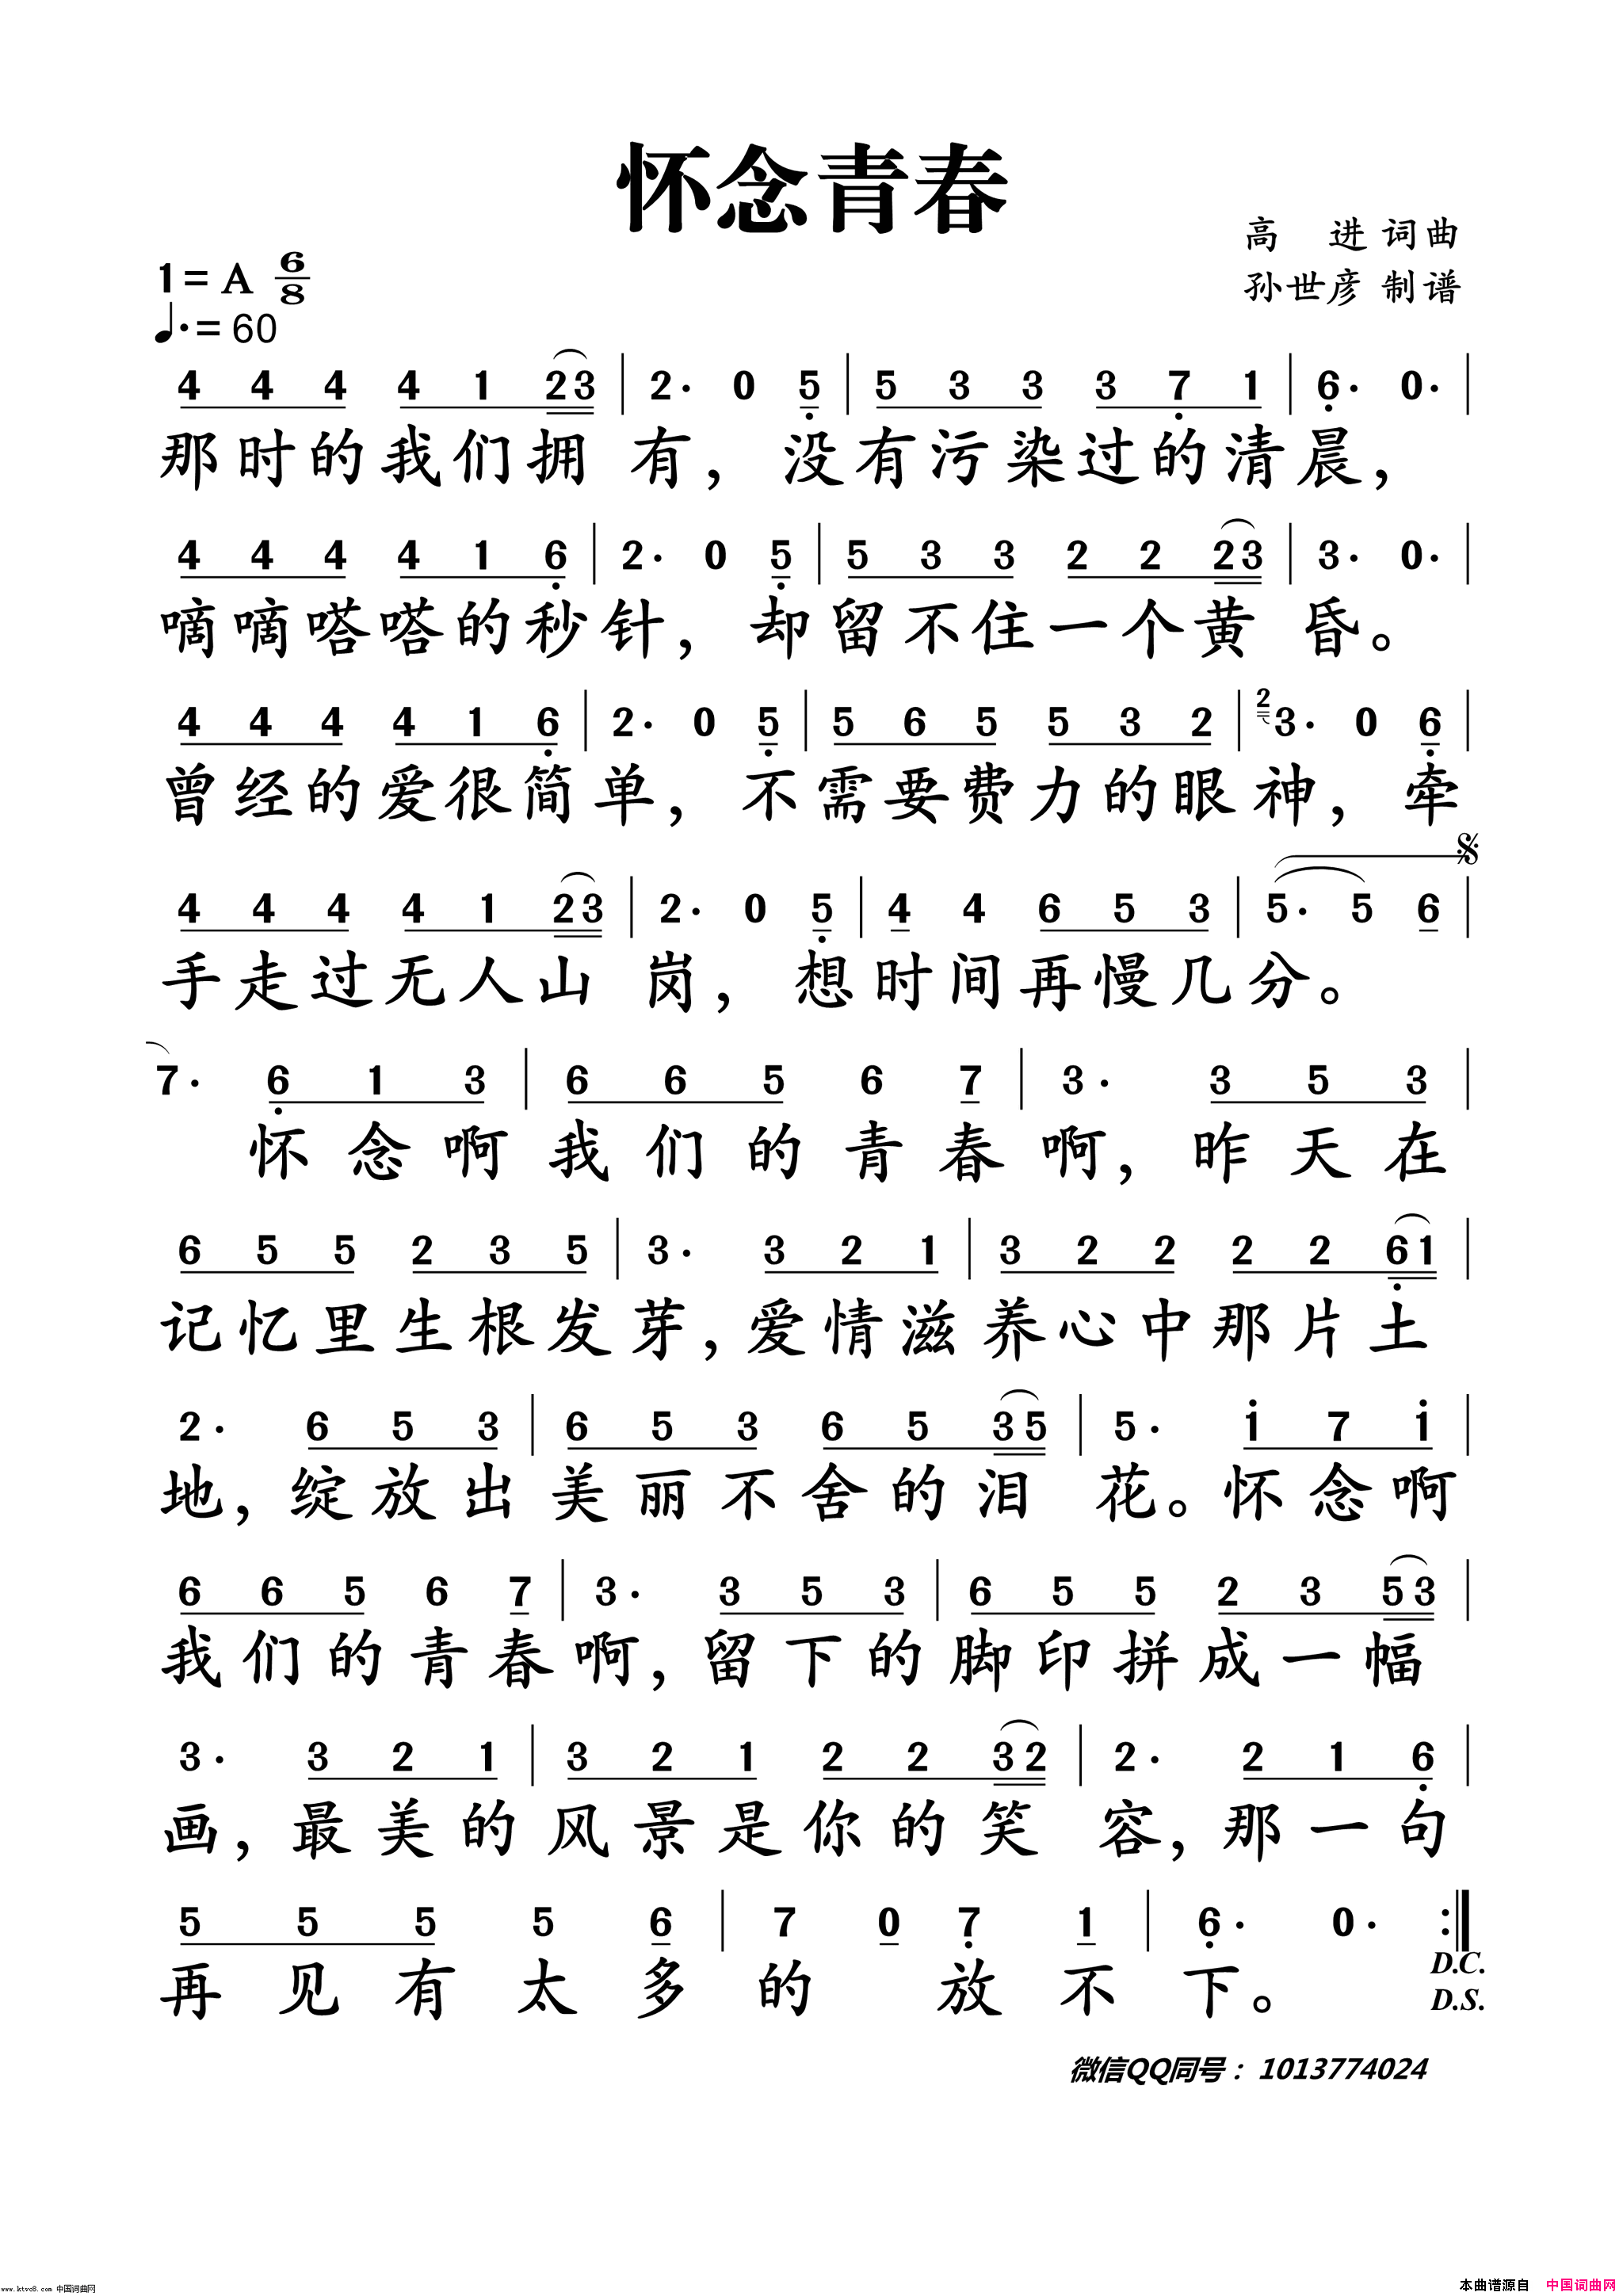 怀念青春
高 进 词曲
1=A 6/8
孙世彦 制谱
♩.=60
4 4 4 4 1 23 | 2. 0 5 | 5 3 3 3 7 1 | 6. 0. |
那时的我们拥 有，没有污染过的清晨，
4 4 4 4 1 6 | 2. 0 5 | 5 3 3 2 2 23 | 3. 0. |
嘀嘀嗒嗒的秒针，却留不住一个黄 昏。
4 4 4 4 1 6 | 2. 0 5 | 5 6 5 5 3 2 | 2 3. 0 6 |
曾经的爱很简单，不需要费力的眼神，牵
4 4 4 4 1 23 | 2. 0 5 | 4 4 6 5 3 | 5. 5 6 |
手走过无人山 岗，想时间再慢几分。
7. 6 1 3 | 6 6 5 6 7 | 3. 3 5 3 |
怀念啊我们的青春啊，昨天在
6 5 5 2 3 5 | 3. 3 2 1 | 3 2 2 2 2 61 |
记忆里生根发芽，爱情滋养心中那片土
2. 6 5 3 | 6 5 3 6 5 35 | 5. 1 7 1 |
地，绽放出美丽不舍的泪 花。怀念啊
6 6 5 6 7 | 3. 3 5 3 | 6 5 5 2 3 53 |
我们的青春啊，留下的脚印拼成一幅
3. 3 2 1 | 3 2 1 2 2 32 | 2. 2 1 6 |
画，最美的风景是你的笑 容，那一句
5 5 5 5 6 | 7 0 7 1 | 6. 0. :‖
再见有太多的 放不下。
D.C.
D.S.
微信QQ同号：1013774024
www.ktvc8.com 中国词曲网
本曲谱源自 中国词曲网